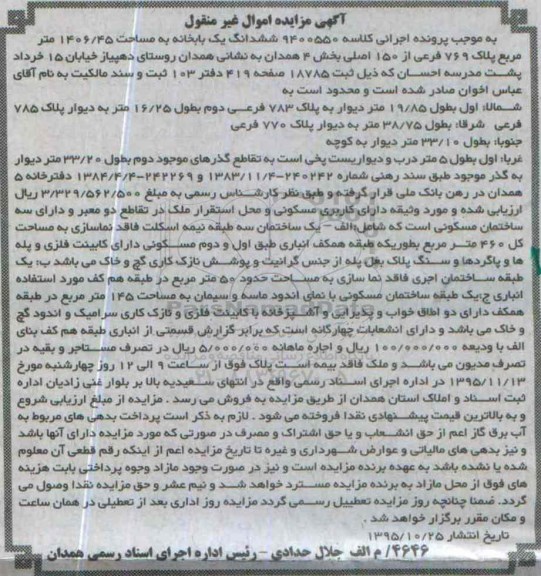 آگهی مزایده اموال غیر منقول
به موجب پرونده اجرائی کلاسه ۹۴۰۰۵۵۰ ششدانگ یک بابخانه به مساحت ۱۴۰۶/۴۵ متر
مربع پلاک ۷۶۹ فرعی از ۱۵۰ اصلی بخش ۴ همدان به نشانی همدان روستای دهپیاز خیابان ۱۵ خرداد
پشت مدرسه احسان که ذیل ثبت ۱۸۷۸۵ صفحه ۴۱۹ دفتر ۱۰۳ ثبت و سند مالکیت به نام آقای
عباس اخوان صادر شده است و محدود است به
شمالا: اول بطول ۱۹/۸۵ متر دیوار به پلاک ۷۸۳ فرعی دوم بطول ۱۶/۲۵ متر به دیوار پلاک ۷۸۵
فرعی شرقا: بطول ۳۸/۷۵ متر به دیوار پلاک ۷۷۰ فرعی
جنوبا: بطول ۳۳/۱۰ متر دیوار به کوچه
غربا: اول بطول ۵ متر درب و دیواریست پخی است به تقاطع گذرهای موجود دوم بطول ۳۳/۲۰ متر دیوار
به گذر موجود طبق سند رهنی شماره ۲۴۰۲۴۲-۱۳۸۳/۱۱/۴ و ۲۴۲۲۶۹-۱۳۸۴/۴/۴ دفترخانه ۵
همدان در رهن بانک ملی قرار گرفته و طبق نظر کارشناس رسمی به مبلغ ۳/۳۲۹/۵۶۲/۵۰۰ ریال
ارزیابی شده و مورد وثیقه دارای کاربری مسکونی و محل استقرار ملک در تقاطع دو معبر و دارای سه
ساختمان مسکونی است که شامل:الف- یک ساختمان سه طبقه نیمه اسکلت فاقد نماسازی به مساحت
کل ۴۶۰ متر مربع بطوریکه طبقه همکف انباری طبق اول و دوم مسکونی دارای کابینت فلزی و پله
ها و پاگردها و سنگ پلاک بغل پله از جنس گرانیت و پوشش نازک کاری گچ و خاک می باشد ب: یک
طبقه ساختمان اجری فاقد نما سازی به مساحت حدود ۵۰ متر مربع در طبقه هم کف مورد استفاده
انباری ج:یک طبقه ساختمان مسکونی با نمای اندود ماسه و سیمان به مساحت ۱۴۵ متر مربع در طبقه
همکف دارای دو اطاق خواب و پذیرایی و آشپزخانه با کابینت فلزی و نازک کاری سرامیک و اندود گچ
و خاک می باشد و دارای انشعابات چهارگانه است که برابر گزارش قسمتی از انباری طبقه هم کف بنای
الف با ودیعه ۱۰۰/۰۰۰/۰۰۰ ریال و اجاره ماهانه ۵/۰۰۰/۰۰۰ ریال در تصرف مستاجر و بقیه در
تصرف مدیون می باشد و ملک فاقد بیمه است پلاک فوق از ساعت ۹ الی ۱۲ روز چهارشنبه مورخ
۱۳۹۵/۱۱/۱۳ در اداره اجرای اسناد رسمی واقع در انتهای سعیدیه بالا بر بلوار غنی زادیان اداره
ثبت اسناد و املاک استان همدان از طریق مزایده به فروش می رسد . مزایده از مبلغ ارزیابی شروع
و به بالاترین قیمت پیشنهادی نقدا فروخته می شود . لازم به ذکر است پرداخت بدهی های مربوط به
آب برق گاز اعم از حق انشعاب و یا حق اشتراک و مصرف در صورتی که مورد مزایده دارای آنها باشد
و نیز بدهی های مالیاتی و عوارض شهرداری و غیره تا تاریخ مزایده اعم از اینکه رقم قطعی آن معلوم
شده یا نشده باشد به عهده برنده مزایده است و نیز در صورت وجود مازاد وجوه پرداختی بابت هزینه
های فوق از محل مازاد به برنده مزایده مسترد خواهد شد و نیم عشر و حق مزایده نقدا وصول می
گردد. ضمنا چنانچه روز مزایده تعطییل رسمی گردد مزایده روز اداری بعد از تعطیلی در همان ساعت
و مکان مقرر برگزار خواهد شد .
تاریخ انتشار ۱۳۹۵/۱۰/۲۵
۴۶۴۶/ م الف جلال حدادی - رئیس اداره اجرای اسناد رسمی همدان